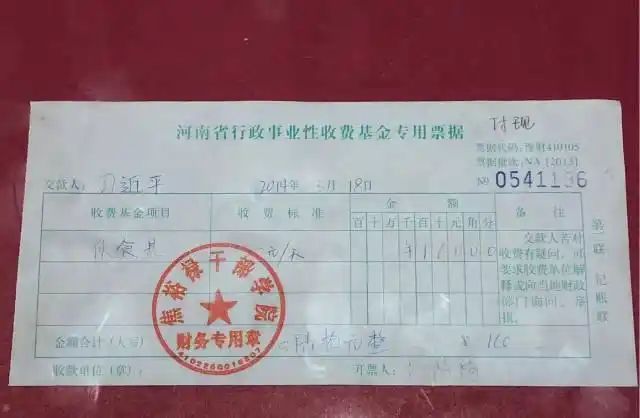 河南省行政事业性收费基金专用票据
付现
票据代码:豫财410105
票据批次:NA [2013]
№ 0541196
交款人: 习近平 2014年 3月 18日
收费基金项目 收费标准 金额 备注
百十万千百十元角分
伙食费 元/天 ¥16000
交款人若对
收费有疑问,可
要求收费单位解
释或向当地财政
部门询问、举
报。
第 联 记账联
焦裕禄干部学院
财务专用章
金额合计(大写) 陆拾元整 ¥ 160
收款单位(章): 开票人: